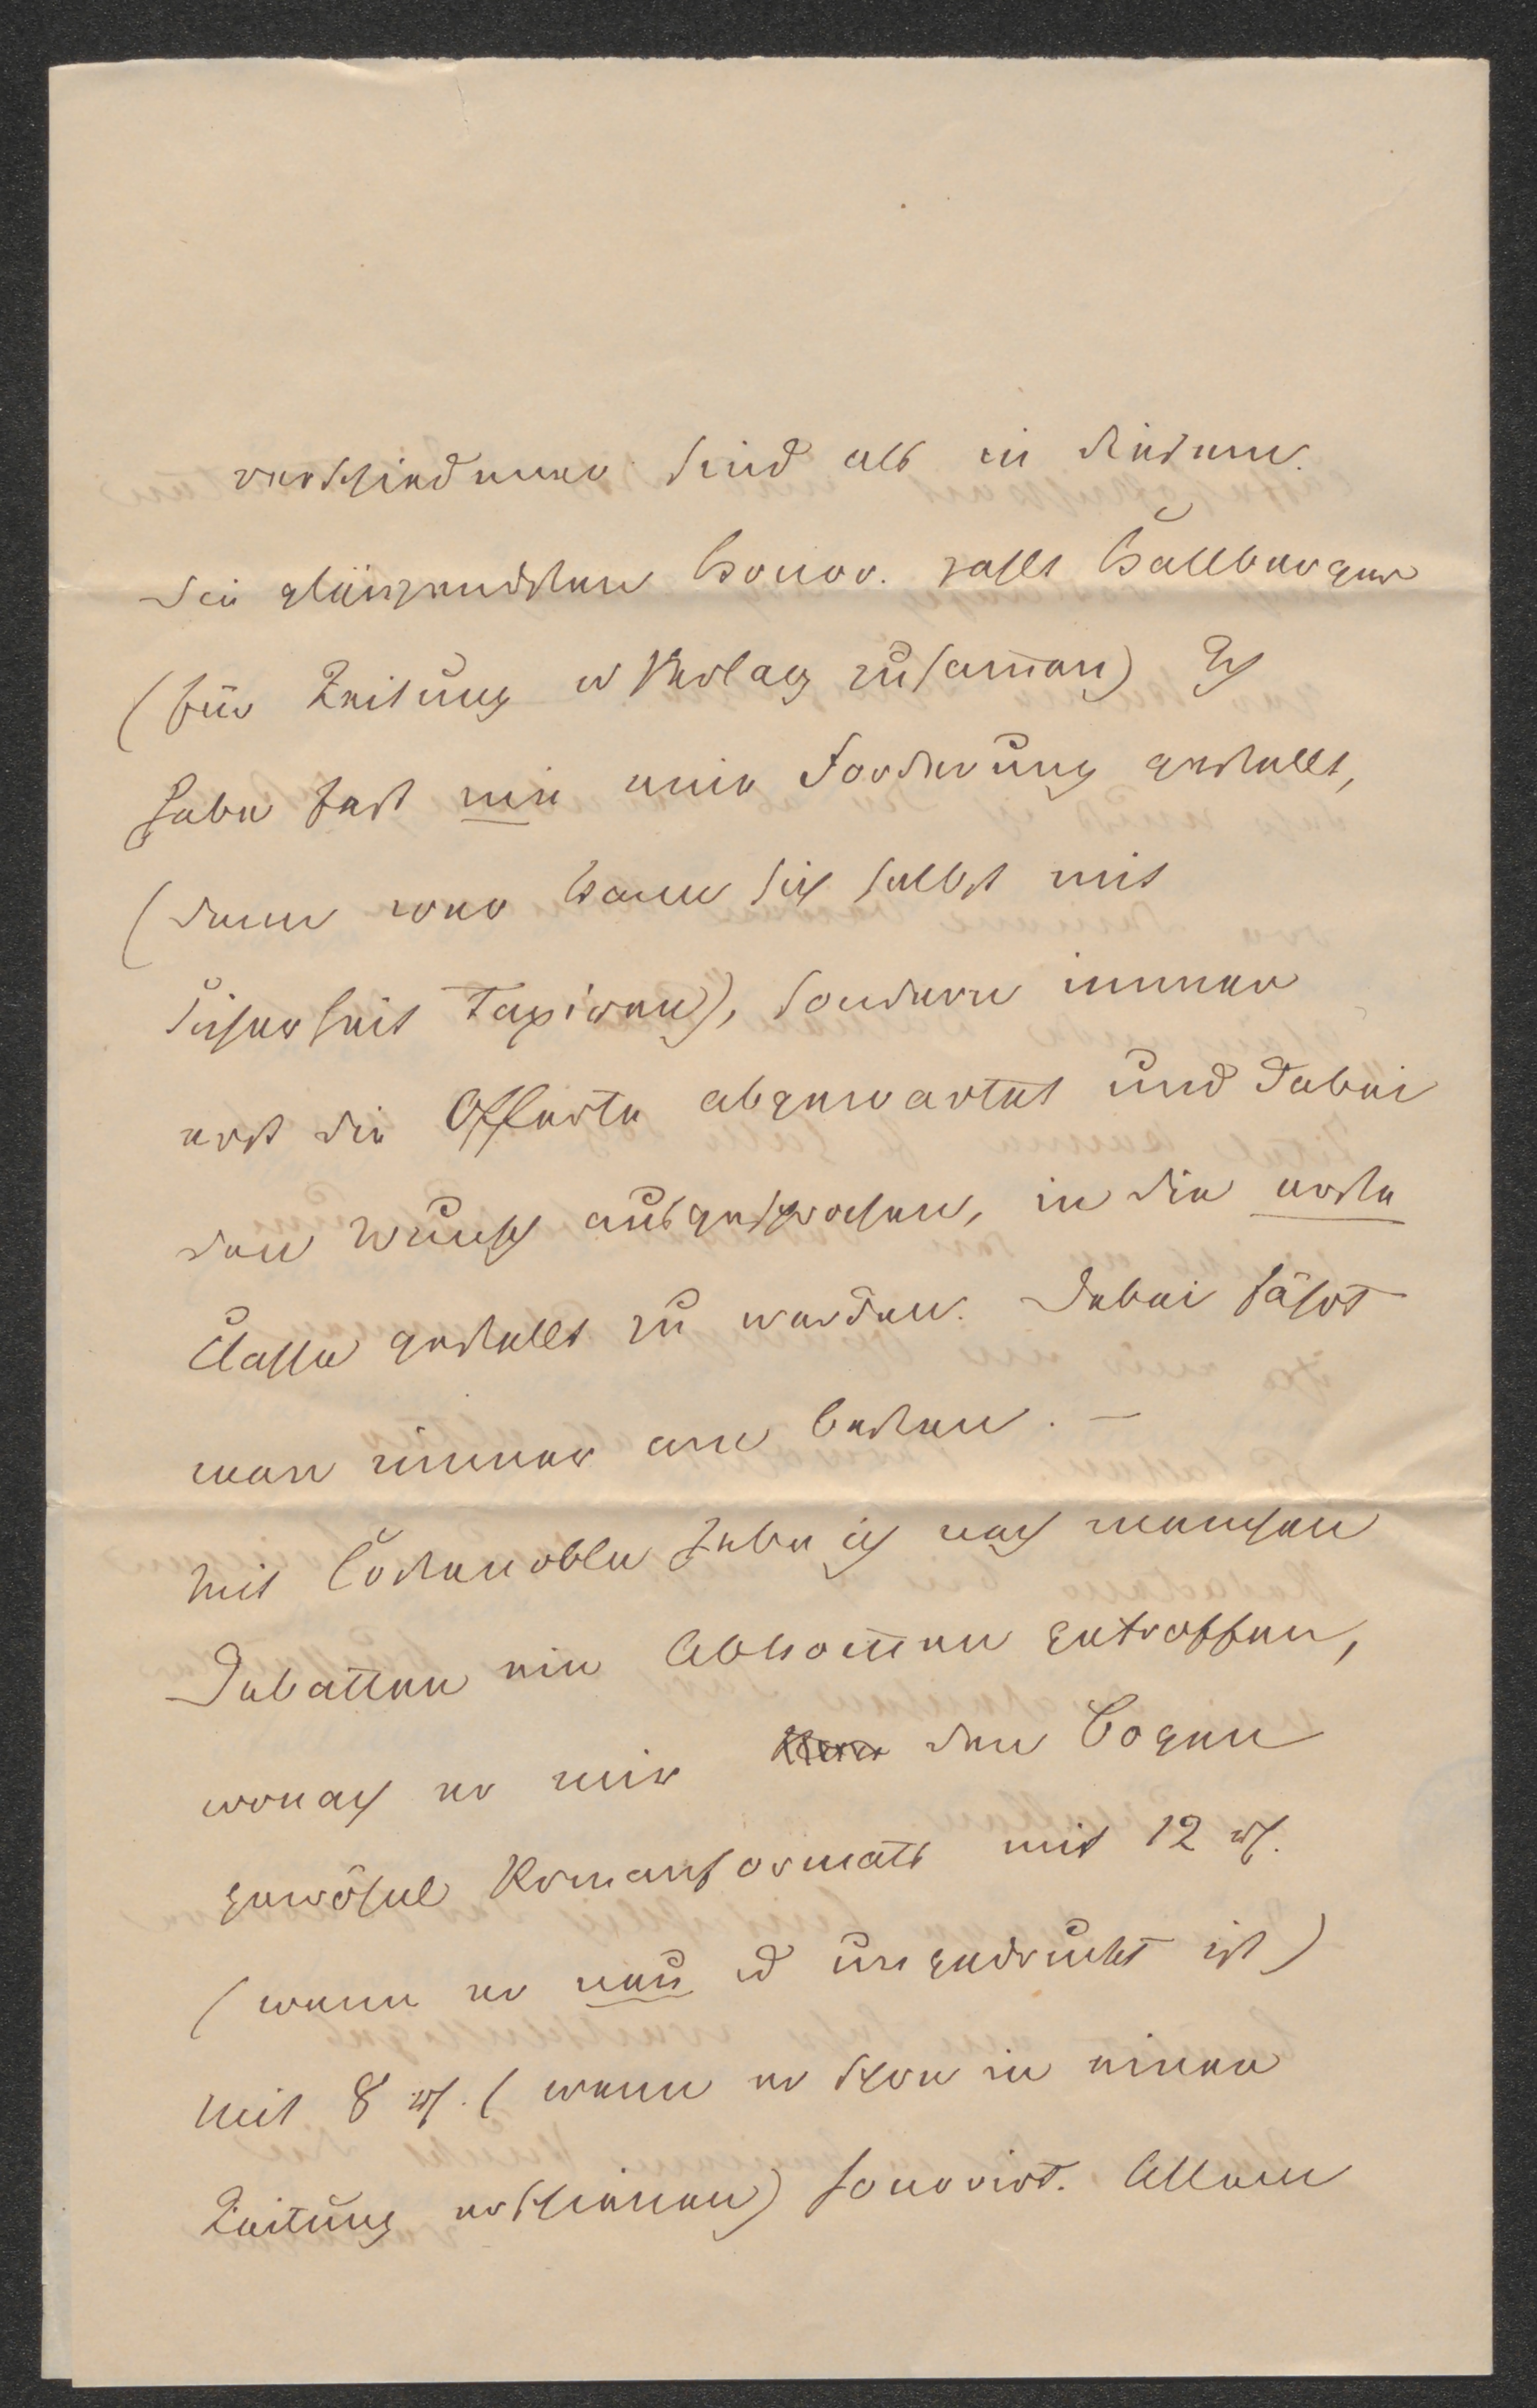 verschiedener sind als in diesem.
Die glänzendsten Honor. zahlt Hallberger
(für Zeitung u Verlag zusam̅en) Ich
habe fast nie eine Forderung gestellt,
(denn wer kann sich selbst mit
Sicherheit Taxiren), sondern immer
erst die Offerte abgewartet und dabei
den Wunsch ausgesprochen, in die erste
Classe gestellt zu werden. Dabei fährt
man immer am besten. –
Mit Costenoble habe ich nach manchen
Debatten ein Abkom̅en getroffen,
wonach er mir den Bogen
gewöhnl Romanformats mit 12 rℓ.
(wenn er neu u ungedruckt ist)
mit 8 rℓ. (wenn er schon in einer
Zeitung erschienen) honorirt. Allein